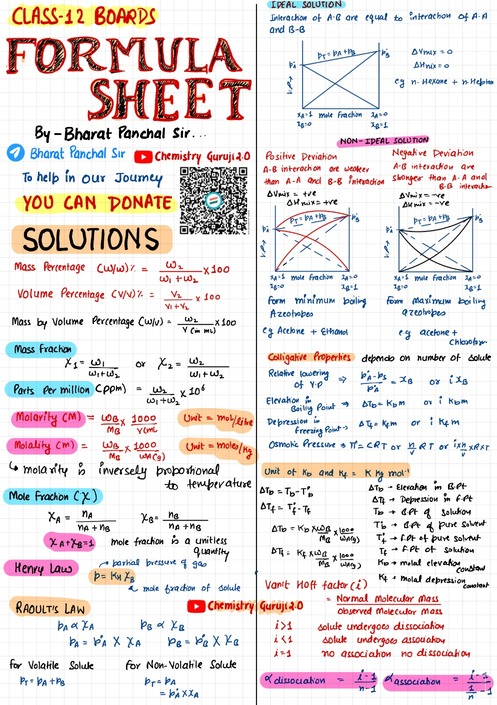 CLASS-12 BOARDS
FORMULA
SHEET
By - Bharat Panchal Sir...
Bharat Panchal Sir
Chemistry Guruji 2.0
To help in our Journey
YOU CAN DONATE
SOLUTIONS
Mass Percentage (W/W)% = w₂/(w₁+w₂) × 100
Volume Percentage (V/V)% = V₂/(V₁+V₂) × 100
Mass by Volume Percentage (W/V) = w₂/V (in mL) × 100
Mass Fraction
χ₁ = w₁/(w₁+w₂) or χ₂ = w₂/(w₁+w₂)
Parts Per million (ppm) = w₂/(w₁+w₂) × 10⁶
Molarity (M) = W_B/M_B × 1000/V(mL) Unit = mol/litre
Molality (m) = W_B/M_B × 1000/W_A(g) Unit = moles/kg
↳ molarity is inversely proportional
to temperature
Mole Fraction (χ)
χ_A = n_A/(n_A + n_B) χ_B = n_B/(n_A + n_B)
χ_A + χ_B = 1 mole fraction is a unitless
quantity
Henry Law
partial pressure of gas
p = K_H χ_B
mole fraction of solute
RAOULT'S LAW
Chemistry Guruji 2.0
p_A ∝ χ_A p_B ∝ χ_B
p_A = p°_A × χ_A p_B = p°_B × χ_B
for Volatile Solute
p_T = p_A + p_B
for Non-Volatile Solute
p_T = p_A
= p°_A × χ_A
IDEAL SOLUTION
Interaction of A-B are equal to interaction of A-A
and B-B
p_T = p_A + p_B
p°_A
p°_B
V.P →
χ_A = 1 mole fraction χ_A = 0
χ_B = 0 χ_B = 1
ΔVmix = 0
ΔHmix = 0
e.g n-Hexane + n-Heptane
NON-IDEAL SOLUTION
Positive Deviation
A-B interaction are weaker
than A-A and B-B interaction
ΔVmix = +ve
ΔHmix = +ve
p_T = p_A + p_B
p°_A
p°_B
V.P →
χ_A = 1 mole fraction χ_A = 0
χ_B = 0 χ_B = 1
form minimum boiling
Azeotropes
e.g Acetone + Ethanol
Negative Deviation
A-B interaction are
stronger than A-A and
B-B interaction
ΔVmix = -ve
ΔHmix = -ve
p_T = p_A + p_B
p°_A
p°_B
V.P →
χ_A = 1 mole fraction χ_A = 0
χ_B = 0 χ_B = 1
form maximum boiling
azeotropes
e.g acetone +
Chloroform
Colligative Properties depends on number of solute
Relative lowering
of V.P ⇒ (p°_A - p_s)/p°_A = χ_B or i χ_B
Elevation in
Boiling Point ⇒ ΔTb = Kb m or i Kb m
Depression in
freezing Point ⇒ ΔTf = Kf m or i Kf m
Osmotic Pressure ⇒ π = CRT or n/V RT or i × n/V × RT
Unit of Kb and Kf = K kg mol⁻¹
ΔTb = Tb - T°b
ΔTf = T°f - Tf
ΔTb = Kb × W_B/M_B × 1000/W_A(g)
ΔTf = Kf × W_B/M_B × 1000/W_A(g)
ΔTb → Elevation in B.Pt
ΔTf → Depression in F.Pt
Tb → B.Pt of solution
T°b → B.Pt of pure solvent
T°f → f.Pt of pure solvent
Tf → f.Pt of solution
Kb → molal elevation
constant
Kf → molal depression
constant
Vant Hoff factor (i)
= Normal molecular mass
Observed molecular mass
i > 1 solute undergoes dissociation
i < 1 solute undergoes association
i = 1 no association no dissociation
α dissociation = (i-1)/(n-1)
α association = (i-1)/(1/n - 1)